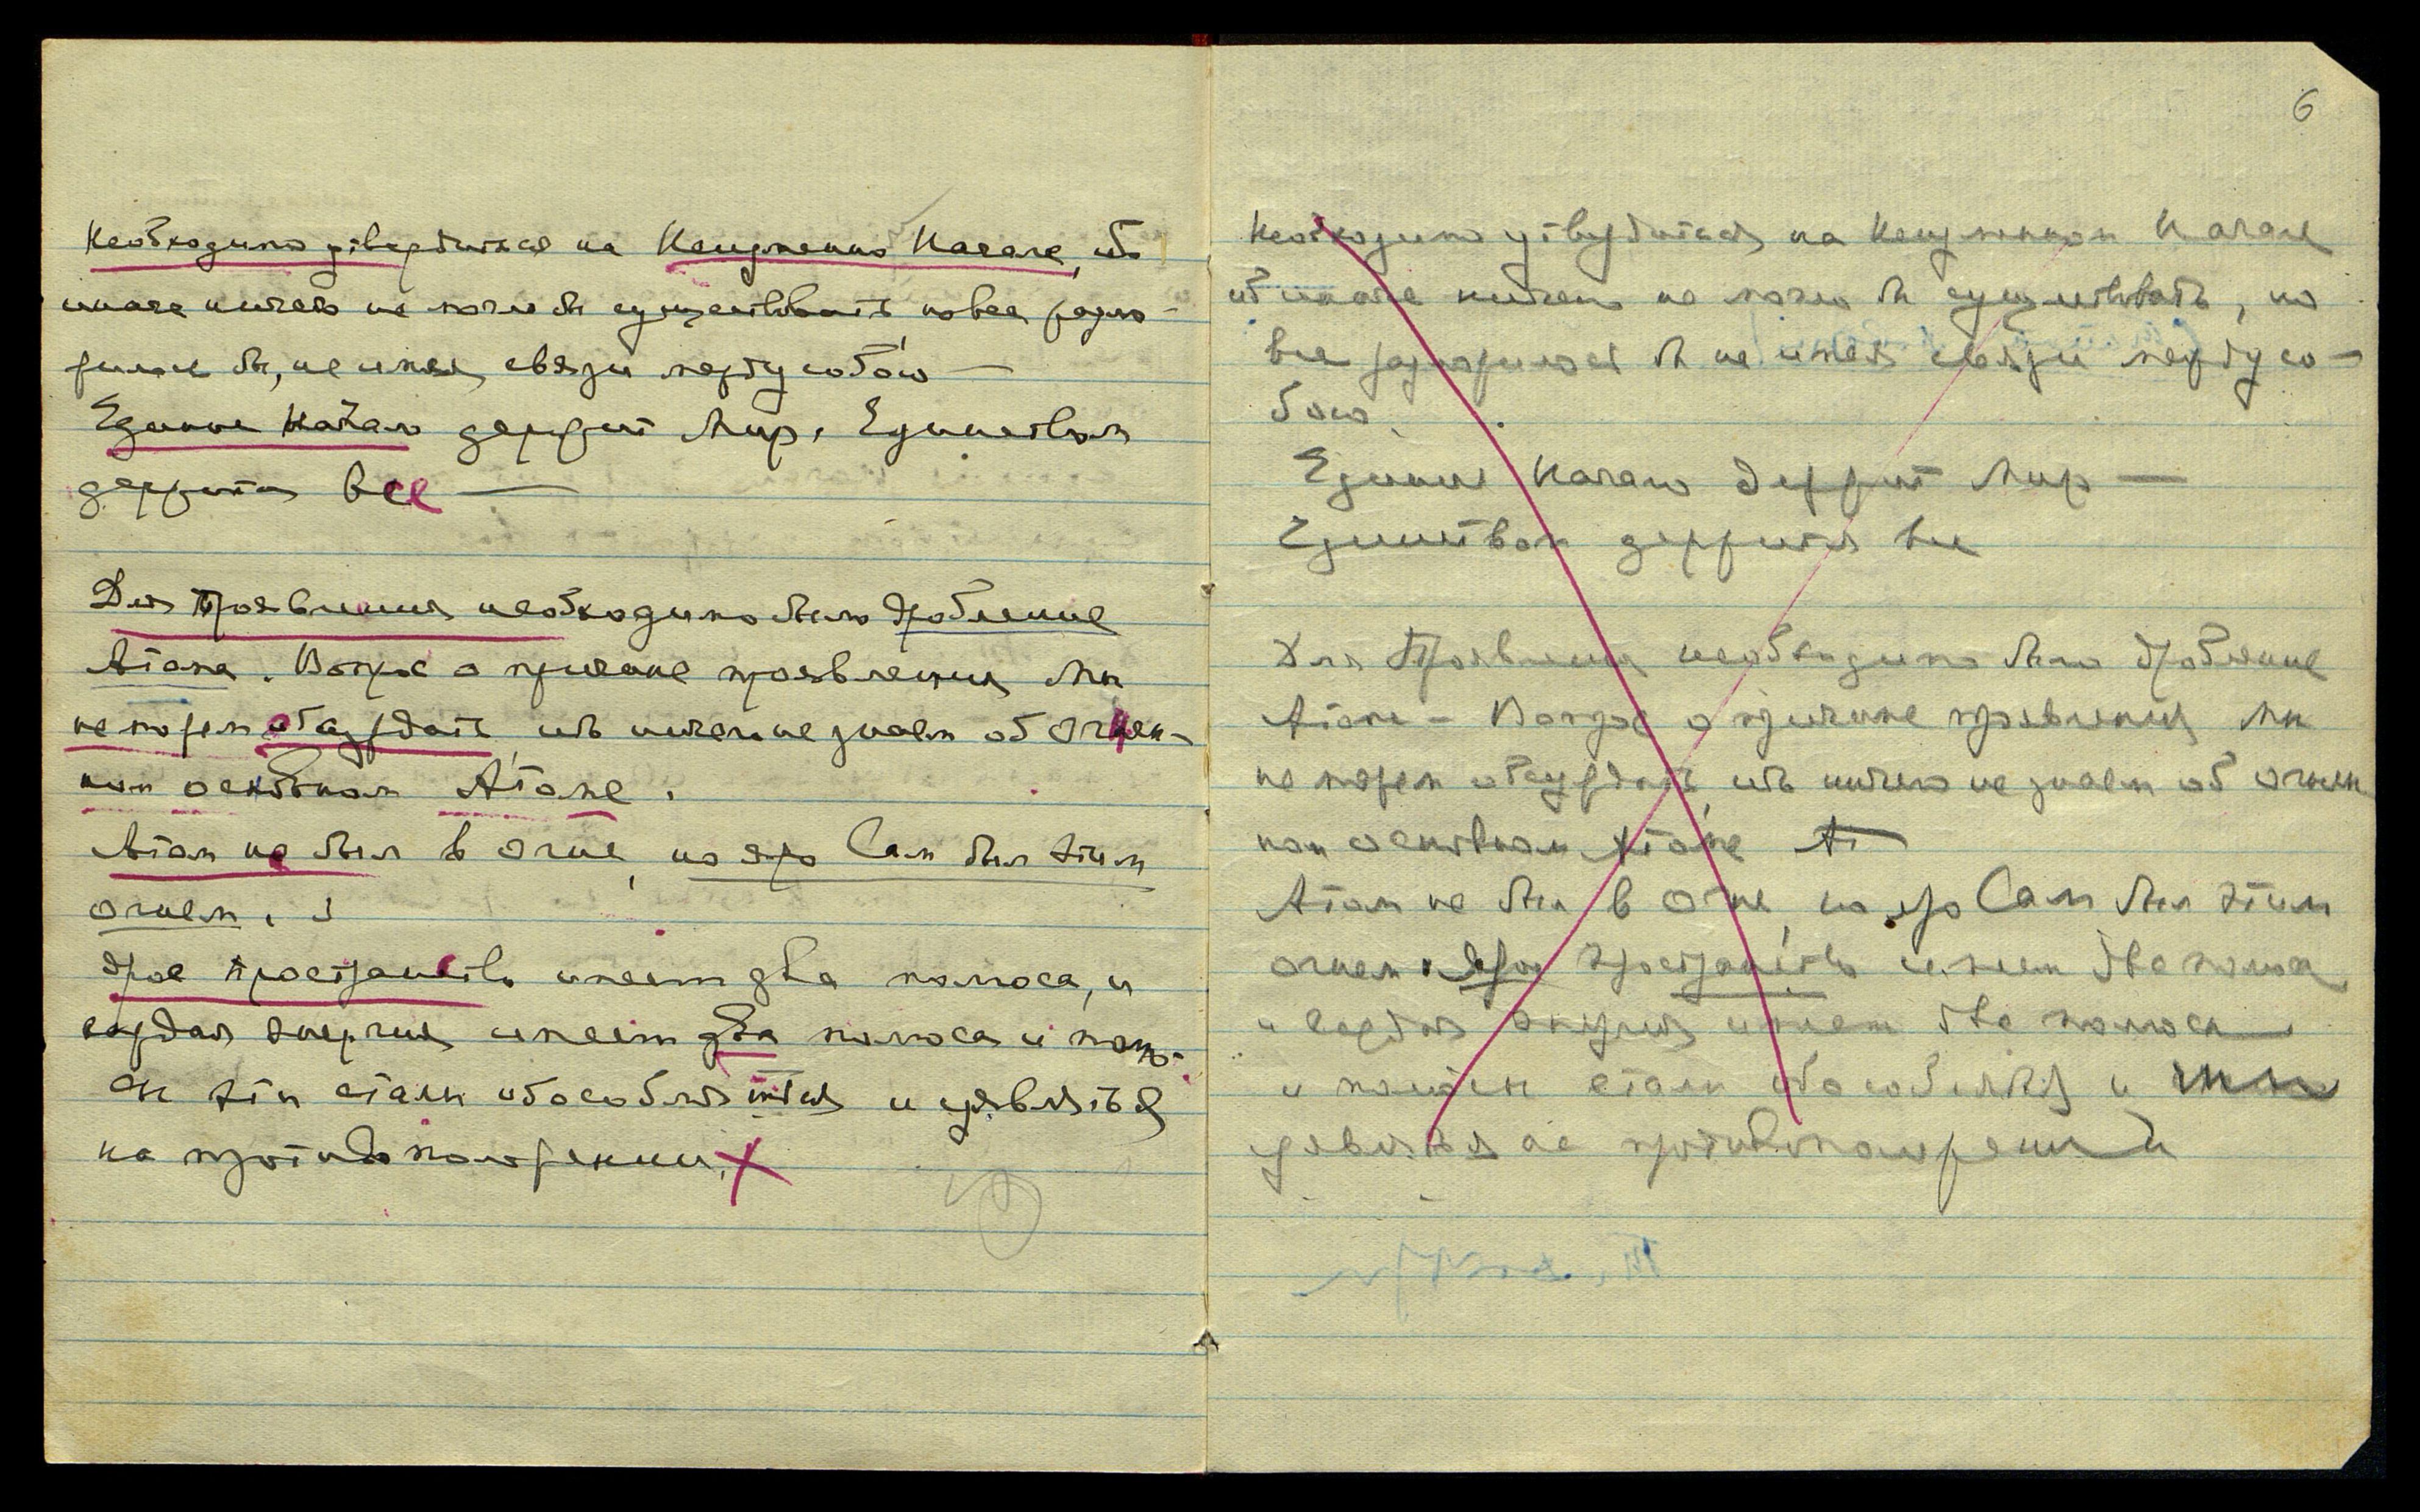 Необходимо утвердиться на Неизменно Начале, ибо
иначе ничего не могло бы существовать но все разло-
жилось бы, не имея связи между собою —
Единое Начало держит Мир. Единством
держится все —
Для Проявления необходимо было дробление
Атома. Вопрос о причине проявления Мы
не можем обсуждать, ибо ничего не знаем об огнен-
ном основном Атоме.
Атом не был в огне, но ядро Сам был этим
огнем.
ядое пространство имеет два полюса, и
каждая энергия имеет два полюса и
эти стали обособляться и
на противоположении.
6
Необходимо утвердиться на Неизменном Начале
ибо иначе ничего не могло бы существовать, но
все разложилось бы не имея связи между со-
бою.
Единое Начало держит Мир —
Единством держится все
Для Проявления необходимо было дробление
Атома — Вопрос о причине проявления Мы
не можем обсуждать, ибо ничего не знаем об огнен
ном основном Атоме Ат
Атом не был в Огне, но ядро Сам был этим
огнем. пространство имеет два полюса
и каждая энергия имеет два полюса
и стали обособляться и
на противоположении